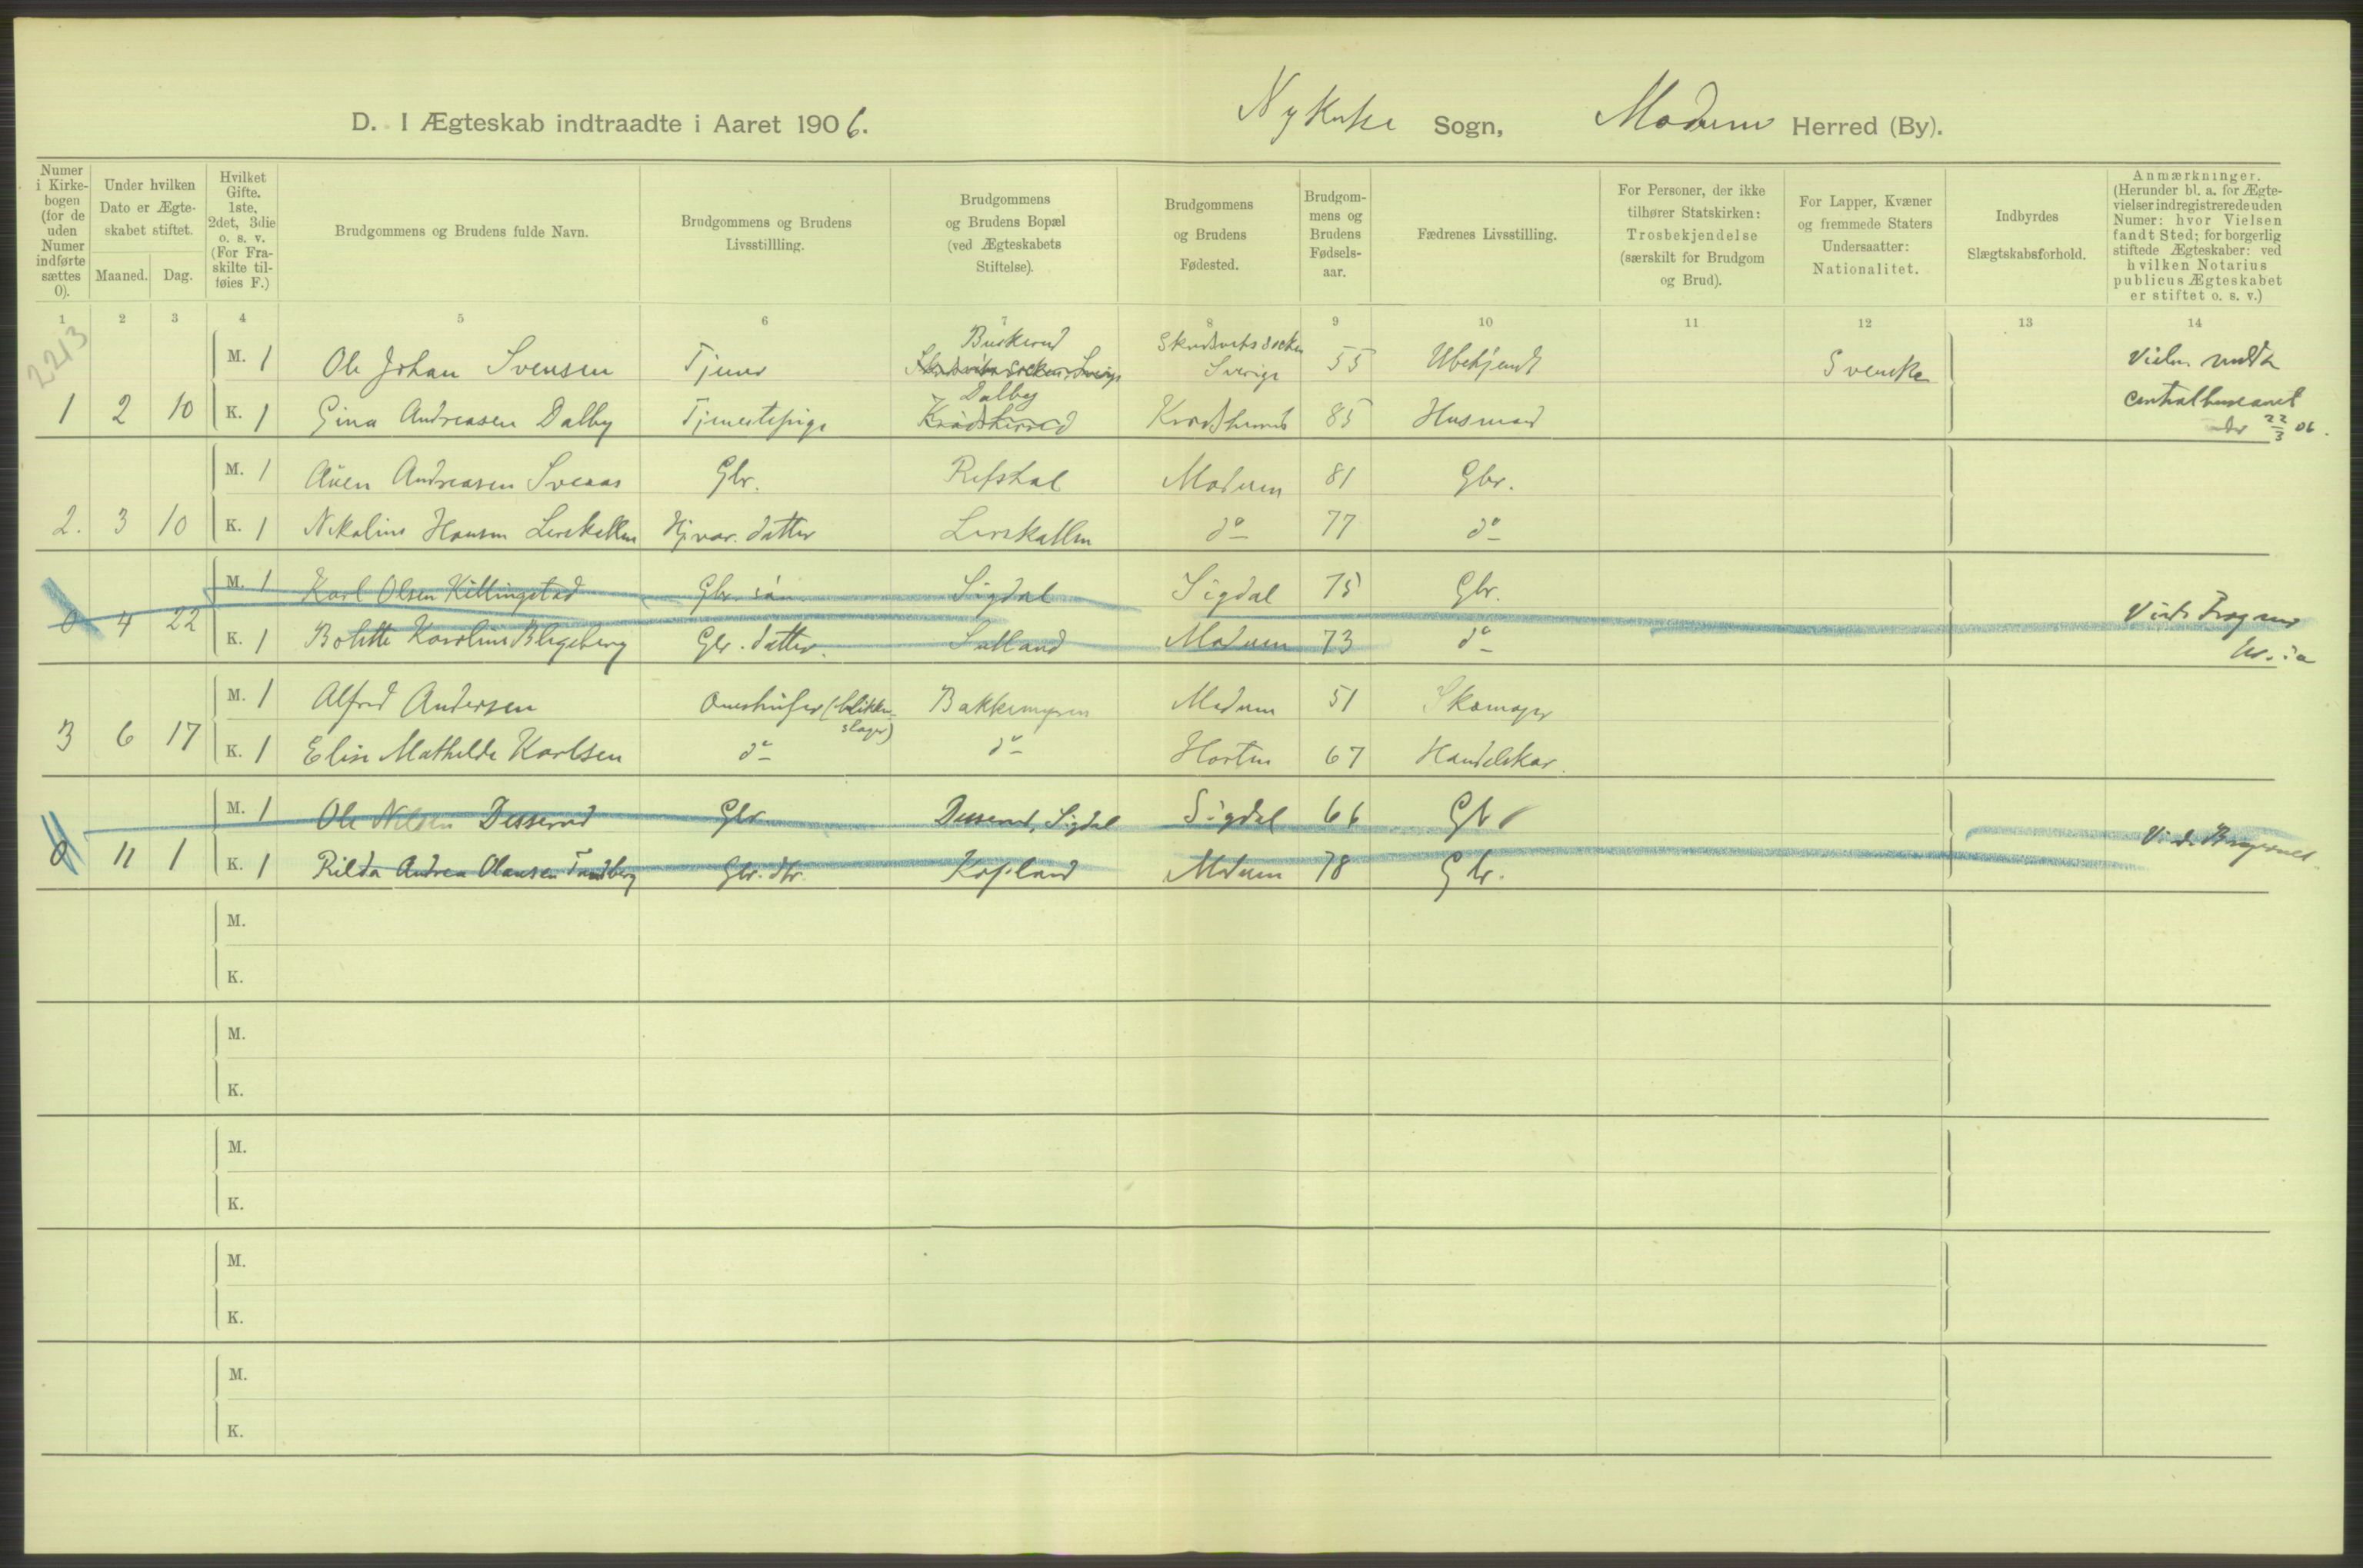 D. I Ægteskab indtraadte i Aaret 1906. Nykirke Sogn, Modum Herred (By).
Numer i Kirkebogen (for de uden Numer indførte sættes 0).
Under hvilken Dato er Ægteskabet stiftet.
Maaned. Dag.
Hvilket Gifte. 1ste, 2det, 3die o. s. v. (For Fraskilte tilføies F.)
Brudgommens og Brudens fulde Navn.
Brudgommens og Brudens Livsstillling.
Brudgommens og Brudens Bopæl (ved Ægteskabets Stiftelse).
Brudgommens og Brudens Fødested.
Brudgommens og Brudens Fødselsaar.
Fædrenes Livsstilling.
For Personer, der ikke tilhører Statskirken: Trosbekjendelse (særskilt for Brudgom og Brud).
For Lapper, Kvæner og fremmede Staters Undersaatter: Nationalitet.
Indbyrdes Slægtskabsforhold.
Anmærkninger. (Herunder bl. a. for Ægtevielser indregistrerede uden Numer: hvor Vielsen fandt Sted; for borgerlig stiftede Ægteskaber: ved hvilken Notarius publicus Ægteskabet er stiftet o. s. v.)
1 2 3 4 5 6 7 8 9 10 11 12 13 14
2213
M. 1 Ole Johan Svensen Tjener Buskerud Sverige 55 Ubekjendt Svenske
1 2 10 K. 1 Gina Andreasen Dalby Tjenestepige Dalby Krødsherred Krødsherred 85 Husmand centralbureauet 22/3 06.
M. 1 Andreasen Sveaas Gbr. Refsdal Modum 81 Gbr.
2. 3 10 K. 1 Nikoline Hansen Lerskallen datter Lerskallen do 77 do
M. 1 Karl Olsen Killingstad Gbr. søn Sigdal Sigdal 75 Gbr.
0 4 22 K. 1 Bolette Karoline Gbr. datter. Modum 73 do
M. 1 Alfred Andersen (blikkenslager) Bakkemyren Modum 51 Skomager
3 6 17 K. 1 Elise Mathilde Karlsen do do Horten 67 Handelskar.
M. 1 Ole Nilsen Desserud Gbr. Desserud, Sigdal Sigdal 66 Gbr
0 11 1 K. 1 Rilda Andrea Olausen Gbr. dtr. Kopland Modum 78 Gbr.
M.
K.
M.
K.
M.
K.
M.
K.
M.
K.